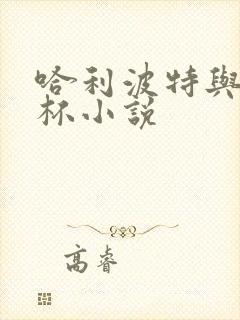 哈利波特與
杯小說
高睿